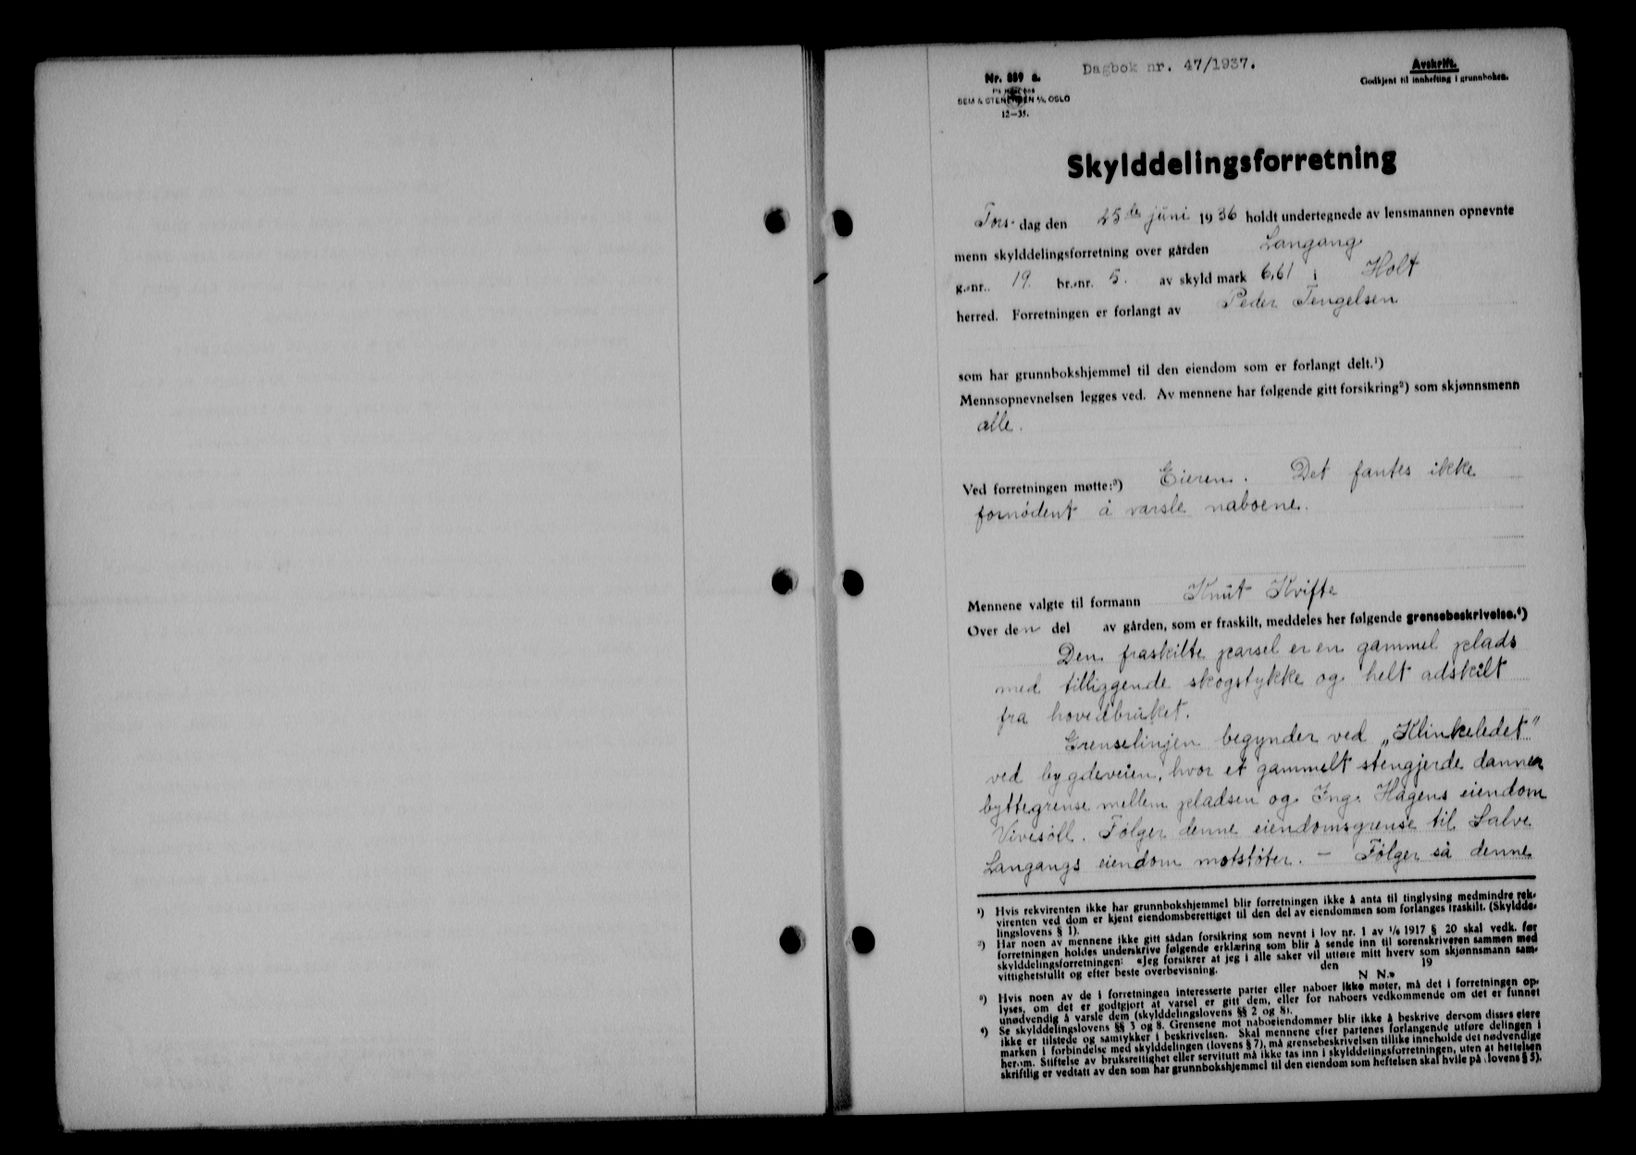 Dagbok nr. 47/1937.
Avskrift.
Godkjent til innhefting i grunnboken.
Nr. 889 a.
SEM & STENERSEN A/S OSLO
12—35.
Skylddelingsforretning
Tors- dag den 25de juni 1936 holdt undertegnede av lensmannen opnevnte
menn skylddelingsforretning over gården Langang
g.-nr. 19. br.-nr. 5. av skyld mark 6,61 i Holt
herred. Forretningen er forlangt av Peder Tengelsen
som har grunnbokshjemmel til den eiendom som er forlangt delt.¹)
Mennsopnevnelsen legges ved. Av mennene har følgende gitt forsikring²) som skjønnsmenn
alle.
Ved forretningen møtte:³) Eieren. Det fantes ikke
fornødent å varsle naboene.
Mennene valgte til formann Knut Kvifte
Over den del av gården, som er fraskilt, meddeles her følgende grensebeskrivelse.⁴)
Den fraskilte parsel er en gammel plads
med tilliggende skogstykke og helt adskilt
fra hovedbruket.
Grenselinjen begynder ved „Klinkeledet"
ved bygdeveien, hvor et gammelt stengjerde danner
byttegrense mellem pladsen og Ing. Hagens eiendom
Vivesöll. Følger denne eiendomsgrense til Salve
Langangs eiendom motstöter. — Følger så denne
¹) Hvis rekvirenten ikke har grunnbokshjemmel blir forretningen ikke å anta til tinglysing medmindre rek-
virenten ved dom er kjent eiendomsberettiget til den del av eiendommen som forlanges fraskilt. (Skyldde-
lingslovens § 1).
²) Har noen av mennene ikke gitt sådan forsikring som nevnt i lov nr. 1 av 1/6 1917 § 20 skal vedk. før
forretningen holdes underskrive følgende erklæring som blir å sende inn til sorenskriveren sammen med
skylddelingsforretningen: «Jeg forsikrer at jeg i alle saker vil utføre mitt hverv som skjønnsmann sam-
vittighetsfullt og efter beste overbevisning. den 19
N N.»
³) Hvis noen av de i forretningen interesserte parter eller naboer ikke møter, må det i forretningen op-
lyses, om det er godtgjort at varsel er gitt dem, eller for naboers vedkommende om det er funnet
unødvendig å varsle dem (skylddelingslovens §§ 2 og 8).
⁴) Se skylddelingslovens §§ 3 og 8. Grensene mot naboeiendommer blir ikke å beskrive dersom disses eiere
ikke er tilstede og samtykker i beskrivelsen. Skal mennene efter partenes forlangende utføre delingen i
marken i forbindelse med skylddelingen (lovens § 7), må grensebeskrivelsen tillike inneholde det nødvendige
herom. Stiftelse av bruksrettighet eller servitutt må ikke tas inn i skylddelingsforretningen, uten at heftelsen
skriftlig er vedtatt av den som har grunnbokshjemmel til den eiendom som heftelsen skal hvile på (lovens § 5).